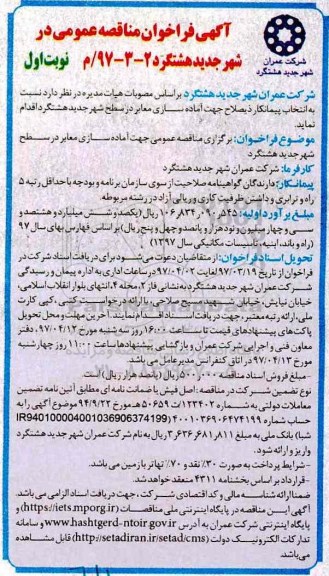 آگهی فراخوان مناقصه عمومی در
شهر جدید هشتگرد ۲-۳-۹۷/م
نوبت اول
شرکت عمران
شهر جدید هشتگرد
شرکت عمران شهر جدید هشتگرد براساس مصوبات هیات مدیره در نظر دارد نسبت
به انتخاب پیمانکار ذیصلاح جهت آماده سازی معابر در سطح شهر جدید هشتگرد اقدام
نماید.
موضوع فراخوان: برگزاری مناقصه عمومی جهت آماده سازی معابر در سطح
شهر جدید هشتگرد
کارفرما: شرکت عمران شهر جدید هشتگرد
پیمانکار: دارندگان گواهینامه صلاحیت از سوی سازمان برنامه و بودجه با حداقل رتبه ۵
راه و ترابری و داشتن ظرفیت کاری و ریالی آزاد در رشته مربوطه.
مبلغ برآورد اولیه: ۱۰۶,۸۳۴,۰۹۰,۵۴۵ ریال (یکصد و شش میلیارد و هشتصد و
سی و چهار میلیون و نود هزار و پانصد و چهل و پنج ریال) براساس فهارس بهای سال ۹۷
(راه و باند، ابنیه، تاسیسات مکانیکی سال ۱۳۹۷)
تحویل اسناد فراخوان: از متقاضیان دعوت می‌شود برای دریافت اسناد شرکت در
فراخوان از تاریخ ۹۷/۰۳/۱۹ لغایت ۹۷/۰۴/۰۲ در ساعات اداری به اداره پیمان و رسیدگی
شرکت عمران شهر جدید هشتگرد به نشانی فاز ۲ محله ۴، انتهای بلوار انقلاب اسلامی،
خیابان نیایش، خیابان شهید مسیح صلاحی، با ارائه درخواست کتبی، کپی کارت
ملی، ارائه رتبه معتبر، جهت دریافت اسناد اقدام نمایند. آخرین مهلت و محل تحویل
پاکت‌های پیشنهادهای قیمت تا ساعت ۱۶:۰۰ روز سه شنبه مورخ ۹۷/۰۴/۱۲، دفتر
معاون فنی و اجرایی شرکت عمران و بازگشایی پیشنهادها ساعت ۱۱:۰۰ روز چهارشنبه
مورخ ۹۷/۰۴/۱۳ در اتاق کنفرانس مدیرعامل می باشد.
- مبلغ فروش اسناد مناقصه ۵۰۰,۰۰۰ ریال (پانصد هزار ریال) است.
نوع تضمین شرکت در مناقصه: اصل فیش یا ضمانت نامه ای مطابق آئین نامه تضمین
معاملات دولتی به شماره ۱۲۳۴۰۲/ت ۵۰۶۵۹ هـ مورخ ۹۴/۹/۲۲ موضوع آگهی را به
حساب شماره ۴۰۰۱۰۳۶۹۰۶۳۷۴۱۹۹ (IR940100004001036906374199
شبا) بانک ملی به مبلغ ۳,۶۳۶,۶۸۱,۸۱۱ ریال به نام شرکت عمران شهر جدید هشتگرد
واریز و ارائه شود.
- شرایط پرداخت به صورت ۳۰٪ نقد و ۷۰٪ تهاتر با زمین می باشد.
- قرارداد بر اساس بخشنامه ۴۳۱۱ منعقد خواهد شد.
ضمنا ارائه شناسه ملی و کد اقتصادی شرکت، جهت دریافت اسناد الزامی می باشد.
آگهی این مناقصه در پایگاه اینترنتی ملی مناقصات (https://iets.mporg.ir) و
پایگاه اینترنتی شرکت عمران به آدرس www.hashtgerd-ntoir.gov.ir و سامانه
تدارکات الکترونیک دولت (http://setadiran.ir/setad/cms) قابل مشاهده
می باشد.